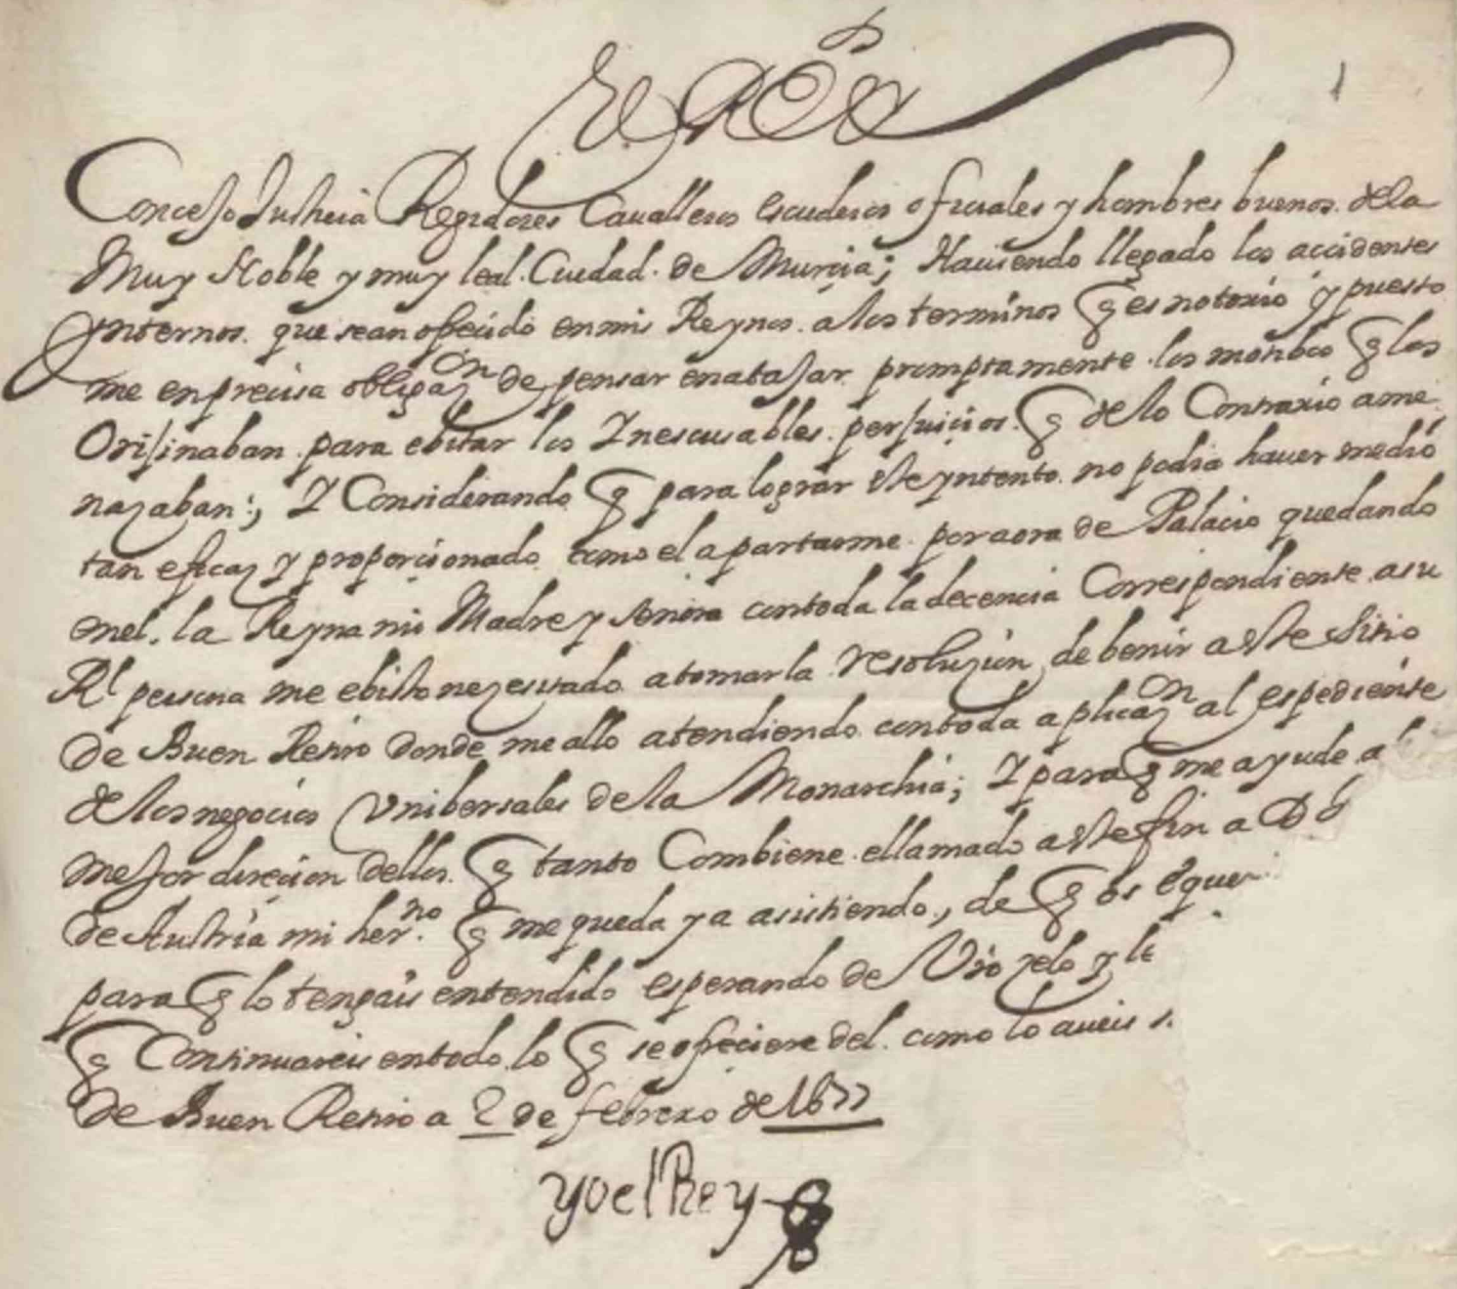 El Rey
1
Concejo Justicia Regidores Cavalleros escuderos oficiales y hombres buenos de la
Muy Noble y muy leal Ciudad de Murcia; Haviendo llegado los accidentes
ynternos que sean ofrecido en mis Reynos a los terminos q es notorio y puesto
me en precisa obligaz.on de pensar en atajar promptamente los motibos q los
Orijinaban para ebitar los Inescusables perjuicios q de lo Contrario ame
nazaban; Y Considerando q para lograr este yntento no podia haver medio
tan eficaz y proporcionado como el apartarme por aora de Palacio quedando
en el la Reyna mi Madre y señora con toda la decencia Correspondiente a su
Rl persona me e bisto nezesitado a tomar la resoluzion de benir a este Sitio
de Buen Retiro donde me allo atendiendo con toda aplicaz.on al espediente
de los negocios Vnibersales de la Monarchia; Y para q me ayude a l
mejor direcion dellos q tanto Combiene e llamado a este fin a Dn
de Austria mi her.no q me queda ya asistiendo, de q os e quer
para q lo tengais entendido esperando de Vro zelo y le
q Continuareis en todo lo q se ofreciere del como lo aveis
de Buen Retiro a 2 de febrero de 1677
yo el Rey